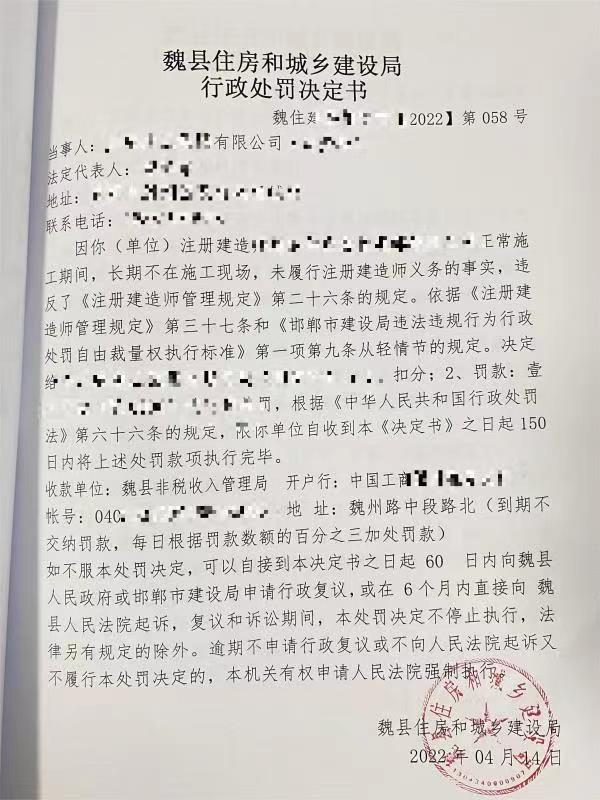 魏县住房和城乡建设局
行政处罚决定书
魏住建 2022】第 058 号
当事人: 有限公司
法定代表人:
地址:
联系电话:
因你（单位）注册建造 正常施
工期间，长期不在施工现场，未履行注册建造师义务的事实，违
反了《注册建造师管理规定》第二十六条的规定。依据《注册建
造师管理规定》第三十七条和《邯郸市建设局违法违规行为行政
处罚自由裁量权执行标准》第一项第九条从轻情节的规定。决定
给 扣分；2、罚款：壹
罚，根据《中华人民共和国行政处罚
法》第六十六条的规定，限你单位自收到本《决定书》之日起 150
日内将上述处罚款项执行完毕。
收款单位：魏县非税收入管理局 开户行：中国工商
帐号：040 地 址：魏州路中段路北（到期不
交纳罚款，每日根据罚款数额的百分之三加处罚款）
如不服本处罚决定，可以自接到本决定书之日起 60 日内向魏县
人民政府或邯郸市建设局申请行政复议，或在 6 个月内直接向 魏
县人民法院起诉，复议和诉讼期间，本处罚决定不停止执行，法
律另有规定的除外。逾期不申请行政复议或不向人民法院起诉又
不履行本处罚决定的，本机关有权申请人民法院强制执行。
魏县住房和城乡建设局
2022 年 04 月 14 日